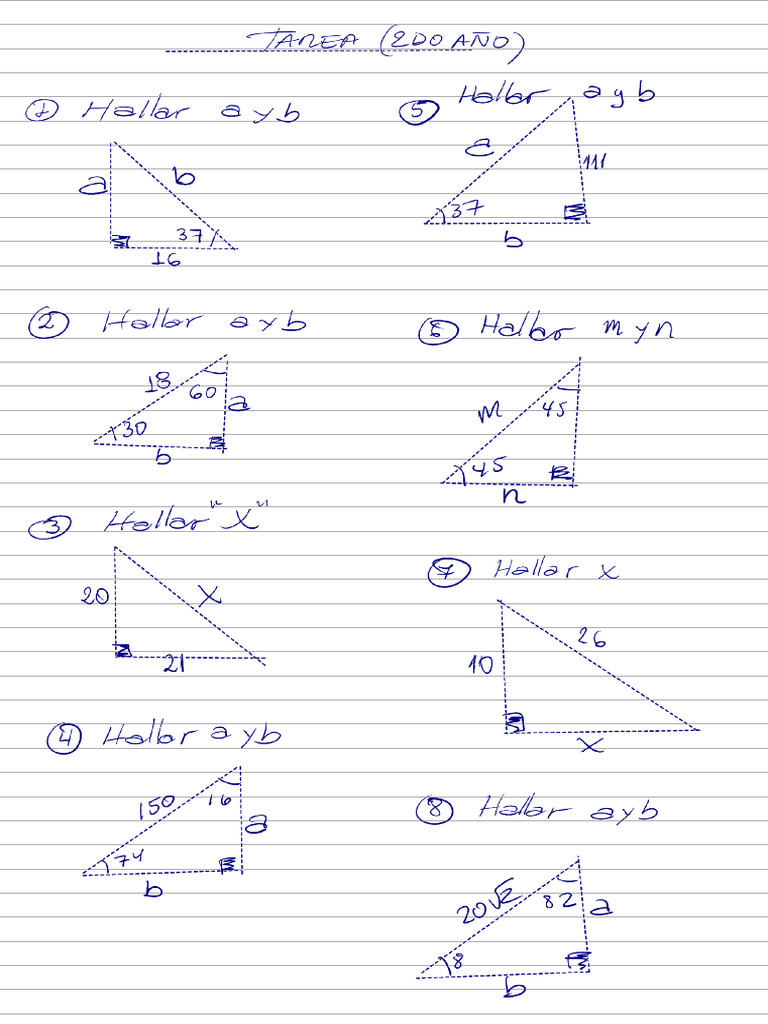 TAREA (2DO AÑO)
① Hallar a y b
a
b
37
16
② Hallar a y b
18
60
a
30
b
③ Hallar "X"
20
X
21
④ Hallar a y b
150
16
a
74
b
⑤ Hallar a y b
a
111
37
b
⑥ Hallar m y n
m
45
45
n
⑦ Hallar x
26
10
x
⑧ Hallar a y b
20√2
82
a
8
b